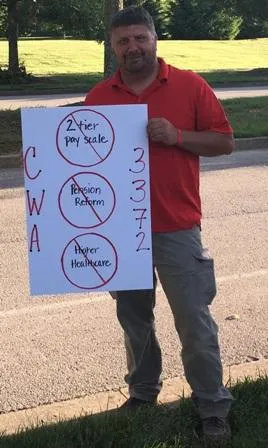 2 tier
pay scale
Pension
Reform
Higher
Healthcare
C
W
A
3
3
7
2